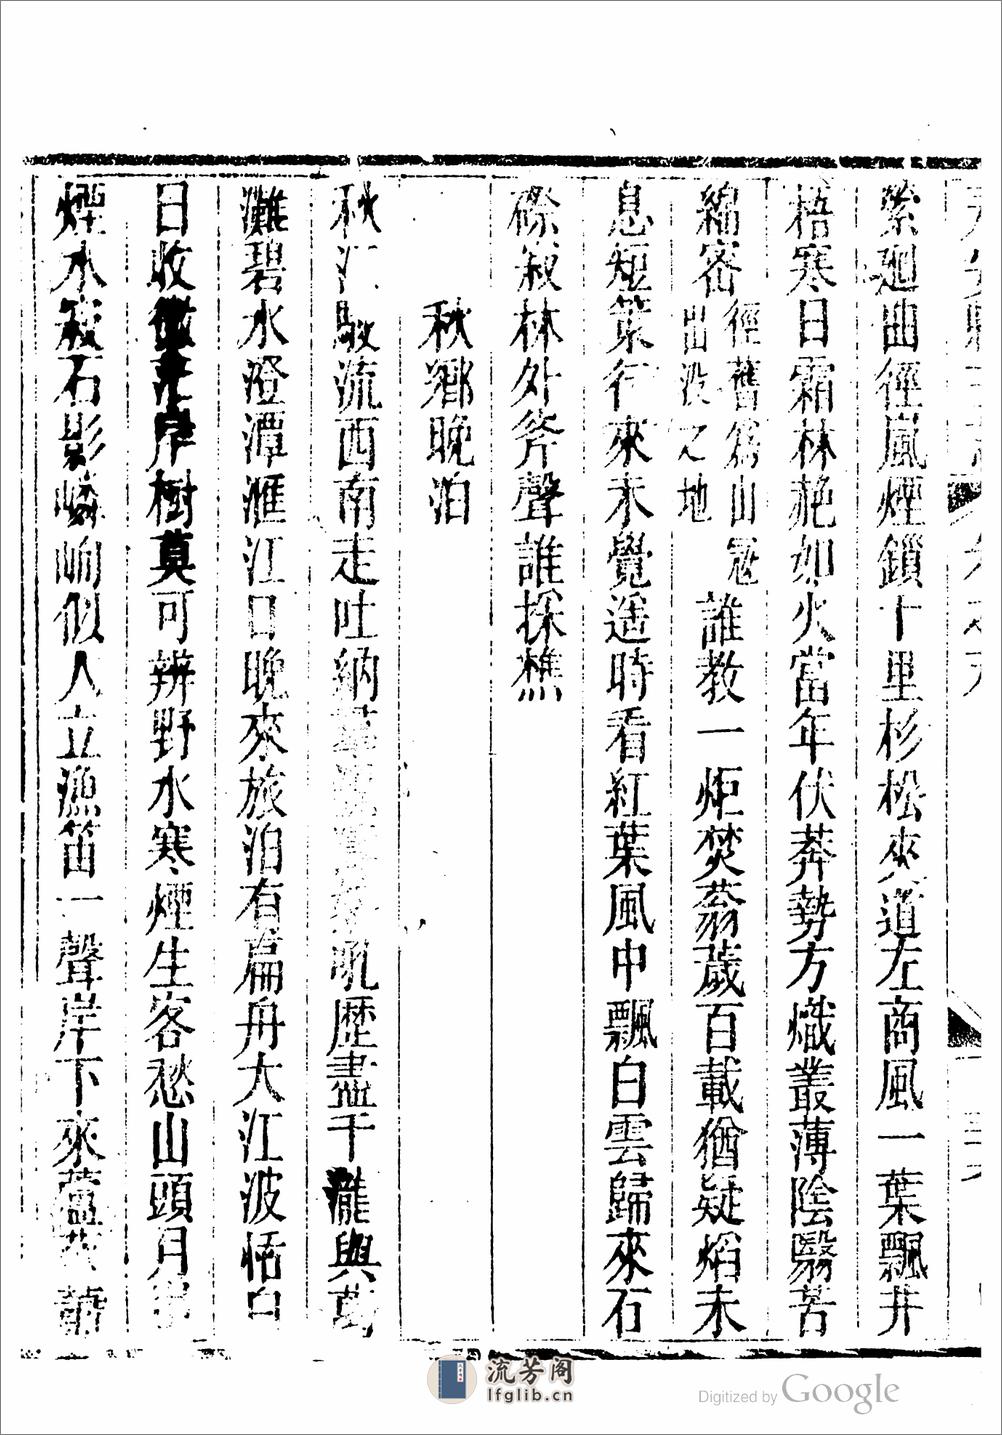 縈廻曲徑嵐煙鎖十里杉松夾道左商風一葉飄井
梧寒日霜林艳如火當年伏莽勢方熾叢薄陰翳苦
綿密徑舊為山冦出没之地誰教一炬焚蓊薉百載猶疑焰未
息短策行來未覺遥時看紅葉風中飄白雲歸來石
磜寂林外斧聲誰採樵
秋鄉晚泊
秋江駛流西南走吐納吼歷盡千瀧與萬
灘碧水澄潭滙江口晚來旅泊有扁舟大江波恬白
日收微茫岸樹莫可辨野水寒煙生客愁山頭月
煙水寂石影嶙峋似人立漁笛一聲岸下來蘆
流芳阁
lfglib.cn
Digitized by Google